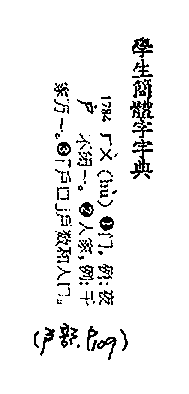 學生簡體字字典
1784 ㄏㄨˋ (hù) ❶门。例:夜
户 不闭一。❷人家,例:千
家万一。❸「戶口」戶数和人口。
(户部. P109)